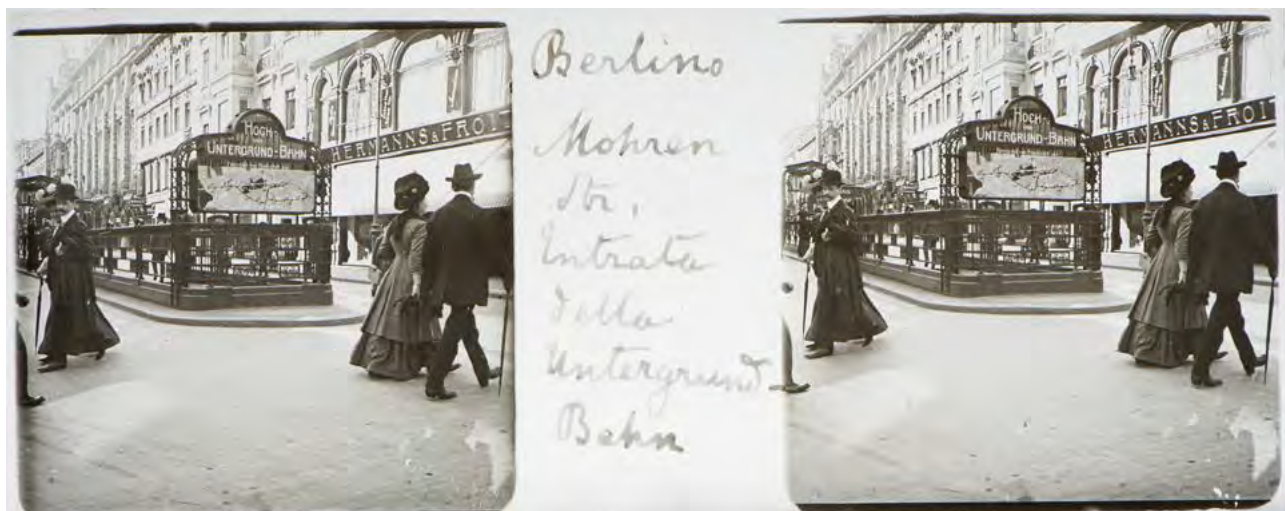 HOCH-
UNTERGRUND-BAHN
HERMANNS & FROIT
Berlino
Mohren
str,
Entrata
della
Untergrund
Bahn
HOCH-
UNTERGRUND-BAHN
HERMANNS & FROIT